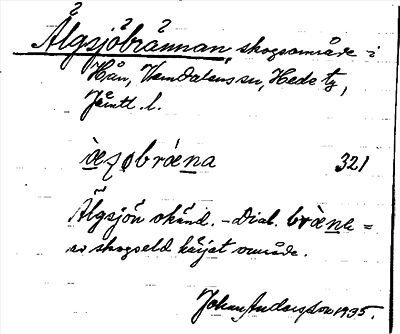 Älgsjöbrännan, skogsområde i
Hån, Vemdalens sn, Hede tg,
Jämtl. l.
bræna 321
Älgsjön okänd. – Dial. bræna =
av skogseld härjat område.
Johan Andersson 1935.